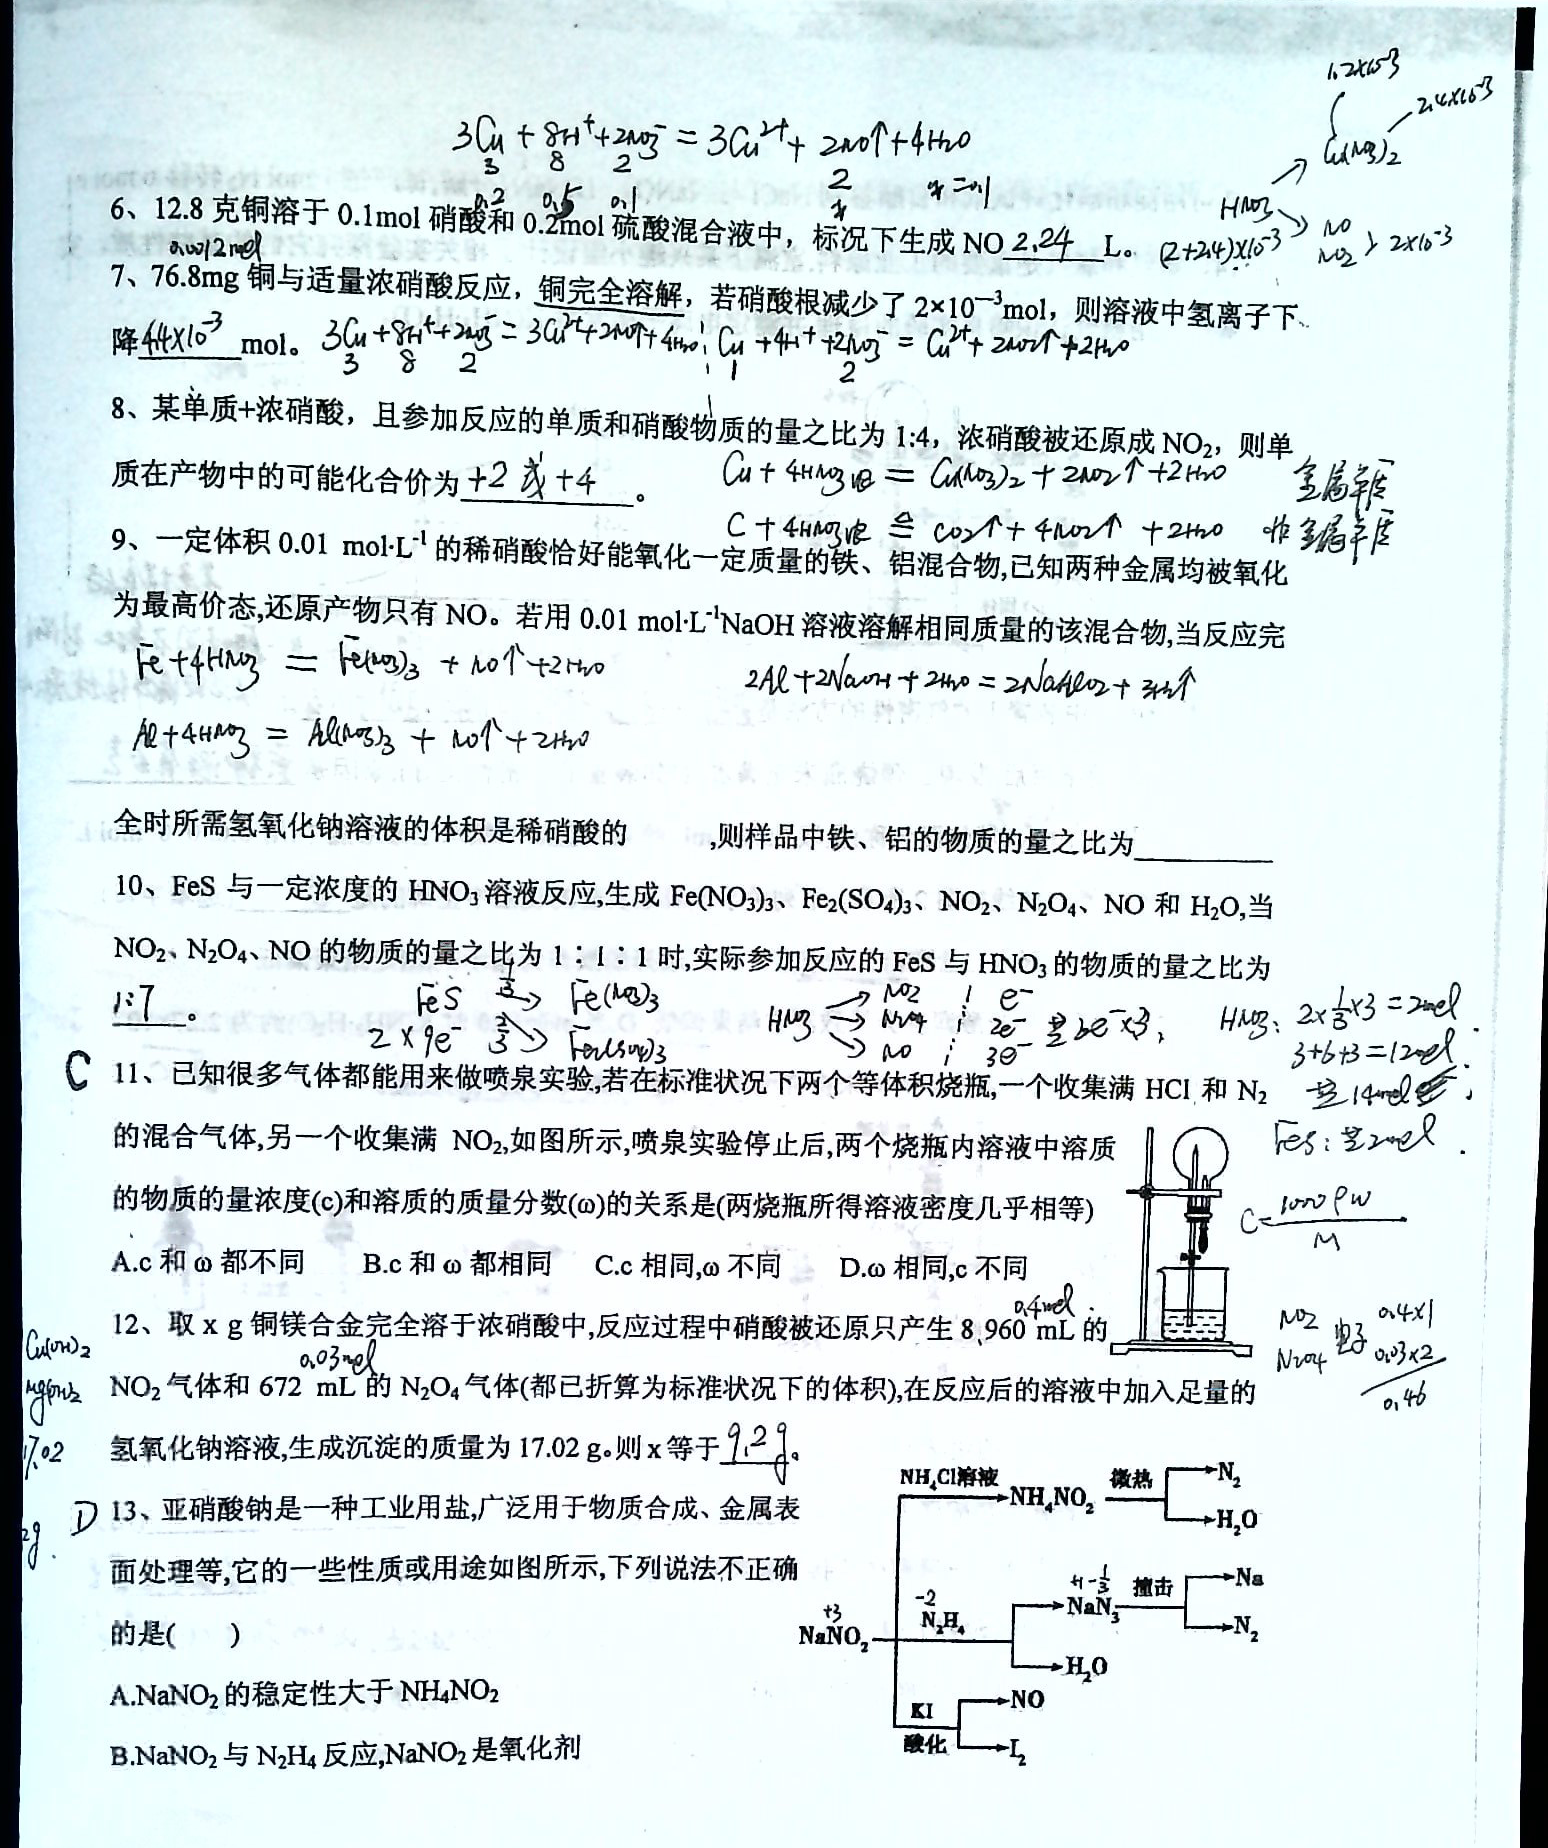 1.2×10⁻³
2.4×10⁻³
Cu(NO₃)₂
3Cu + 8H⁺ + 2NO₃⁻ = 3Cu²⁺ + 2NO↑ + 4H₂O
3 8 2 2
0.2 0.5 0.1 x x=0.1
HNO₃ NO
6、12.8 克铜溶于 0.1mol 硝酸和 0.2mol 硫酸混合液中，标况下生成 NO 2.24 L。
(2+2.4)×10⁻³ NO₂ } 2×10⁻³
0.0012mol
7、76.8mg 铜与适量浓硝酸反应，铜完全溶解，若硝酸根减少了 2×10⁻³mol，则溶液中氢离子下
降 4.4×10⁻³ mol。 3Cu+8H⁺+2NO₃⁻=3Cu²⁺+2NO↑+4H₂O Cu+4H⁺+2NO₃⁻=Cu²⁺+2NO₂↑+2H₂O
3 8 2 1 2
8、某单质+浓硝酸，且参加反应的单质和硝酸物质的量之比为 1:4，浓硝酸被还原成 NO₂，则单
质在产物中的可能化合价为 +2 或 +4 。 Cu+4HNO₃浓=Cu(NO₃)₂+2NO₂↑+2H₂O 金属单质
C+4HNO₃浓≙CO₂↑+4NO₂↑+2H₂O 非金属单质
9、一定体积 0.01 mol·L⁻¹ 的稀硝酸恰好能氧化一定质量的铁、铝混合物,已知两种金属均被氧化
为最高价态,还原产物只有 NO。若用 0.01 mol·L⁻¹NaOH 溶液溶解相同质量的该混合物,当反应完
Fe+4HNO₃ = Fe(NO₃)₃ + NO↑+2H₂O 2Al+2NaOH+2H₂O=2NaAlO₂+3H₂↑
Al+4HNO₃ = Al(NO₃)₃ + NO↑+2H₂O
全时所需氢氧化钠溶液的体积是稀硝酸的 ,则样品中铁、铝的物质的量之比为
10、FeS 与一定浓度的 HNO₃ 溶液反应,生成 Fe(NO₃)₃、Fe₂(SO₄)₃、NO₂、N₂O₄、NO 和 H₂O,当
NO₂、N₂O₄、NO 的物质的量之比为 1∶1∶1 时,实际参加反应的 FeS 与 HNO₃ 的物质的量之比为
1:7 。 FeS 1/3 Fe(NO₃)₃ HNO₃ NO₂ e⁻ HNO₃: 2×1/3×3=2mol
2×9e⁻ 2/3 Fe₂(SO₄)₃ N₂O₄ 2e⁻ 共6e⁻×3; 3+6+3=12mol
NO 3e⁻ 共14mol
C 11、已知很多气体都能用来做喷泉实验,若在标准状况下两个等体积烧瓶,一个收集满 HCl 和 N₂
的混合气体,另一个收集满 NO₂,如图所示,喷泉实验停止后,两个烧瓶内溶液中溶质
FeS: 共2mol
的物质的量浓度(c)和溶质的质量分数(ω)的关系是(两烧瓶所得溶液密度几乎相等)
C=1000ρw/M
A.c 和 ω 都不同 B.c 和 ω 都相同 C.c 相同,ω 不同 D.ω 相同,c 不同
0.4mol
12、取 x g 铜镁合金完全溶于浓硝酸中,反应过程中硝酸被还原只产生 8 960 mL 的
NO₂ 电子 0.4×1
N₂O₄ 0.03×2
0.46
Cu(OH)₂ 0.03mol
Mg(OH)₂ NO₂ 气体和 672 mL 的 N₂O₄ 气体(都已折算为标准状况下的体积),在反应后的溶液中加入足量的
17.02 氢氧化钠溶液,生成沉淀的质量为 17.02 g。则 x 等于 9.2g。
D 13、亚硝酸钠是一种工业用盐,广泛用于物质合成、金属表
面处理等,它的一些性质或用途如图所示,下列说法不正确
的是( )
A.NaNO₂ 的稳定性大于 NH₄NO₂
B.NaNO₂ 与 N₂H₄ 反应,NaNO₂ 是氧化剂
NH₄Cl溶液 NH₄NO₂ 微热 N₂
H₂O
+3 NaNO₂ -2 N₂H₄ +1 -1/3 NaN₃ 撞击 Na
N₂
H₂O
KI 酸化 NO
I₂